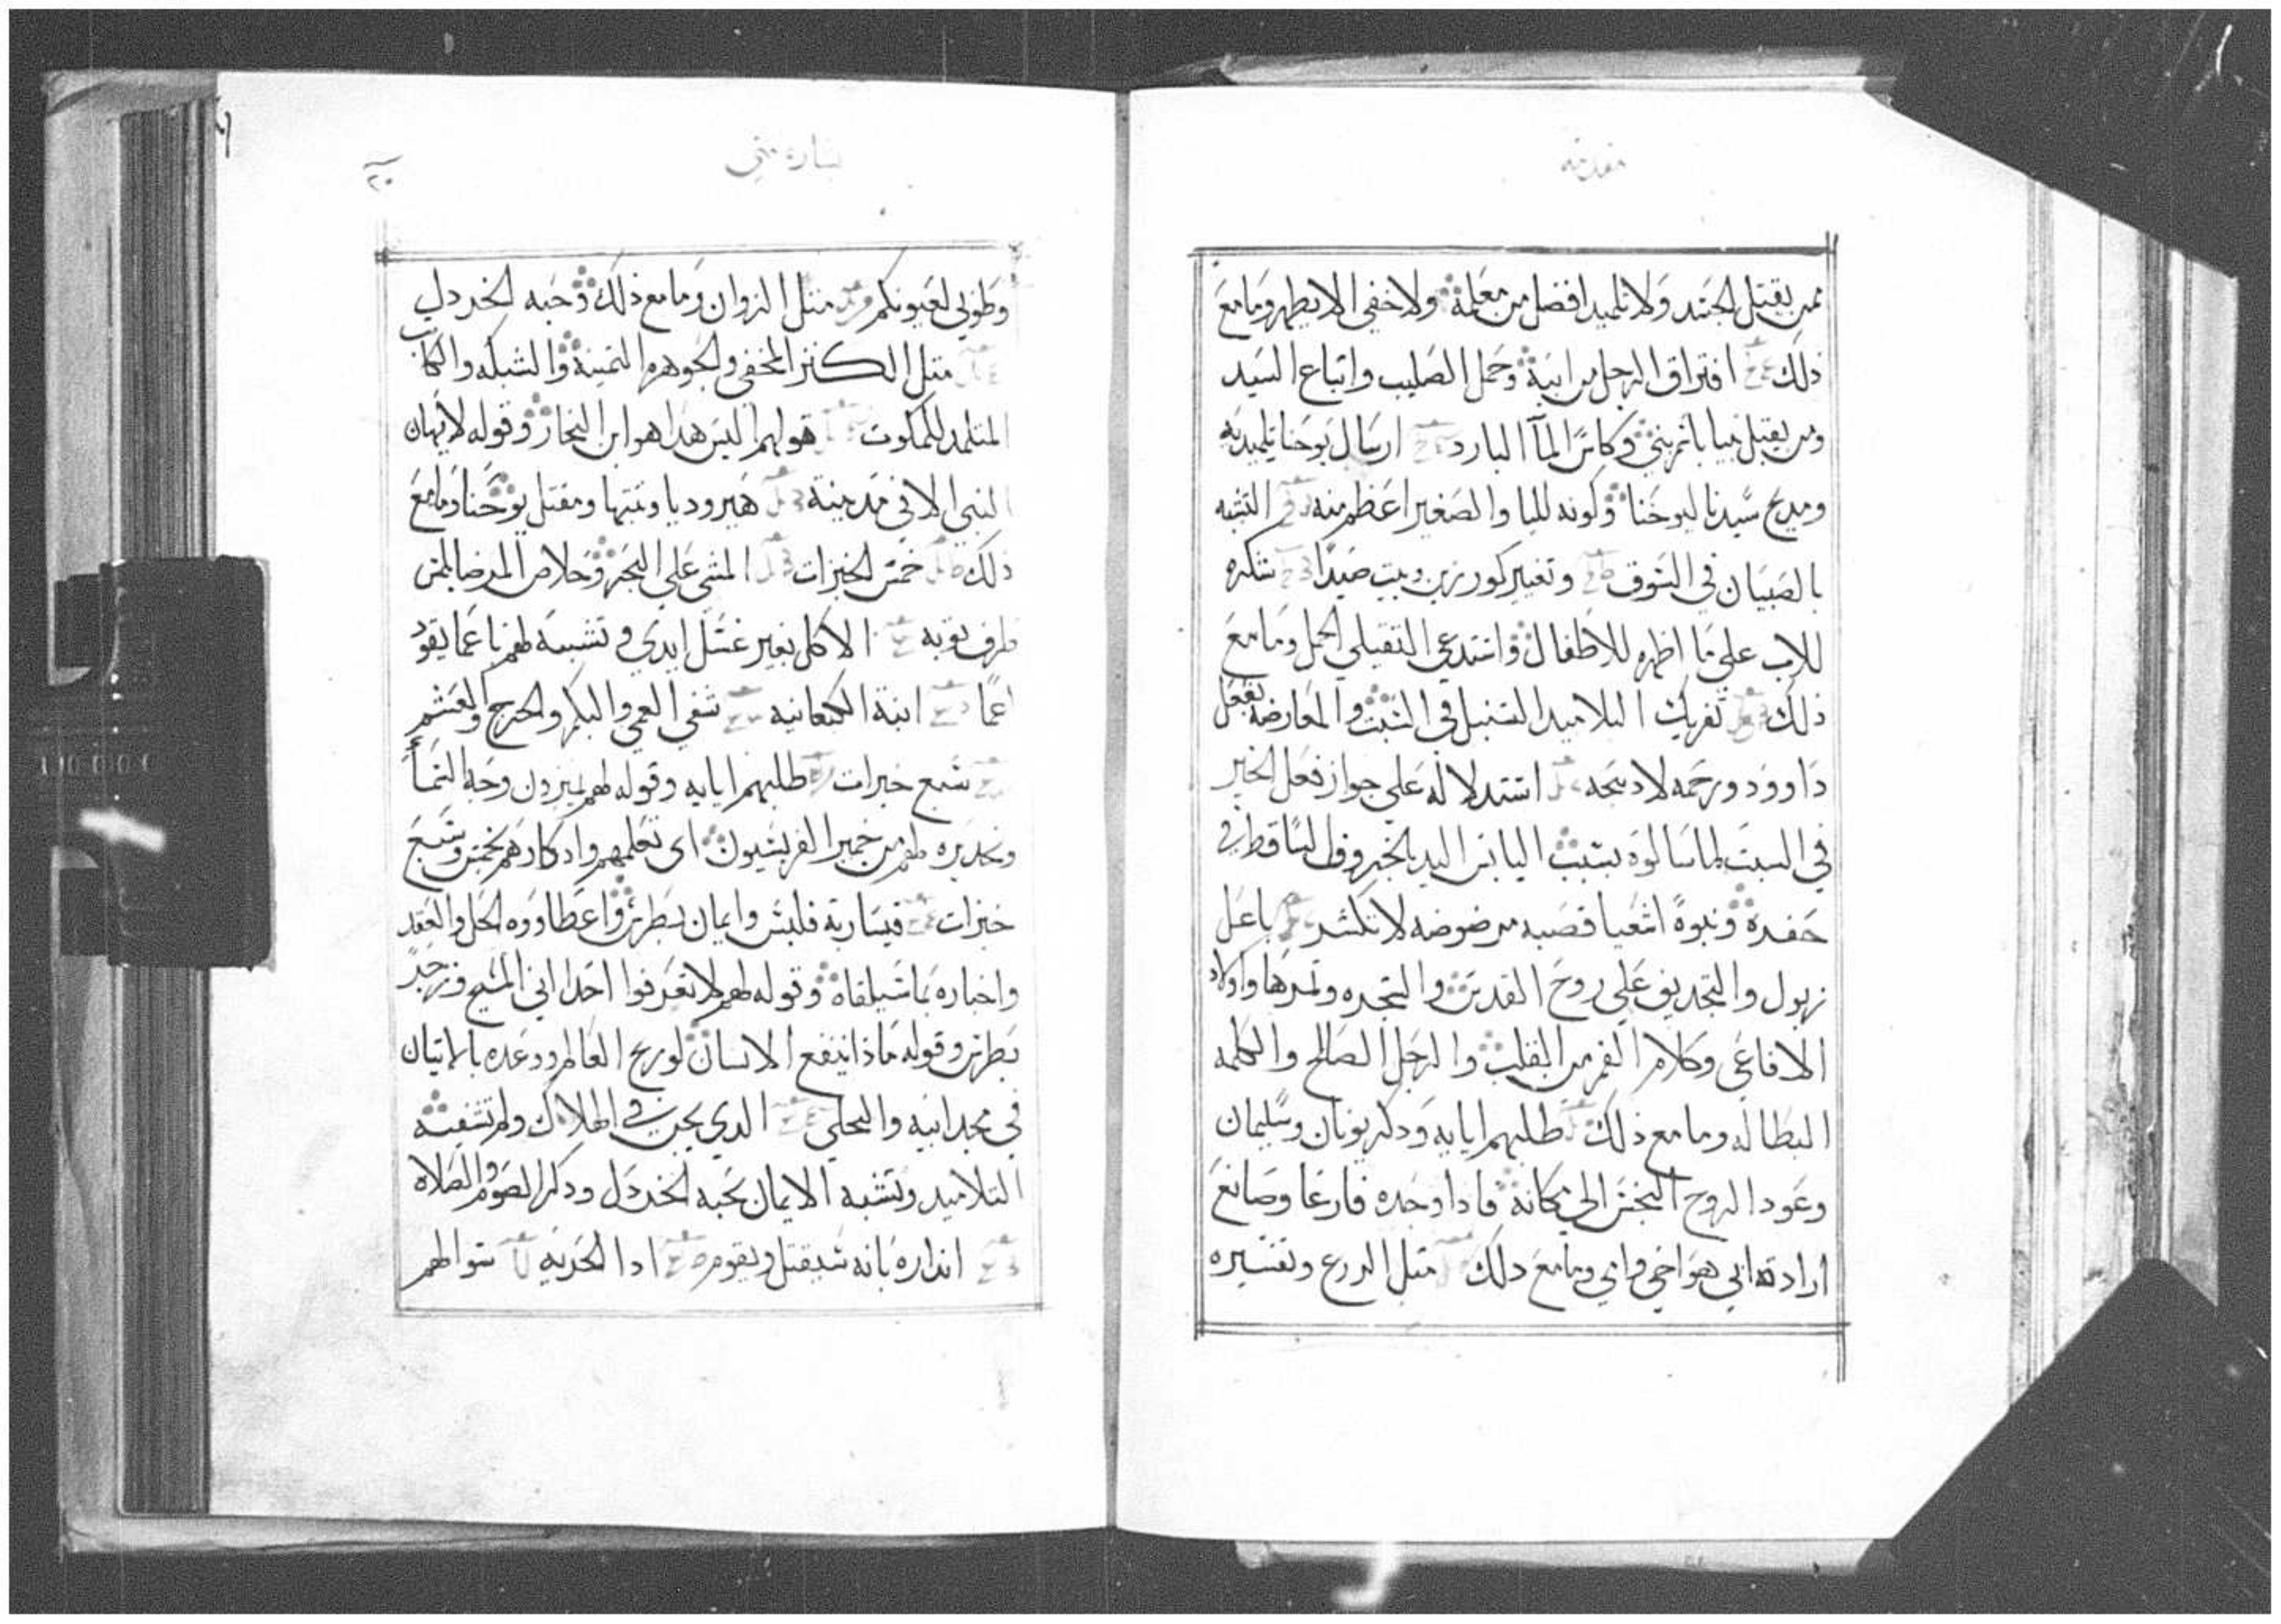 مقدمه
ممن يقتل الجسد ولا تلميد افضل من معلمه ولا خفي الا يظهر وما مع
ذلك افتراق الرجل من ابيه وحمل الصليب واتباع السيد
ومن يقبل نبيا باسم نبي وكاس المآ البارد ارسال يوحنا تلميديه
ومديح سيدنا ليوحنا وكونه لليا والصغير اعظم منه التشبه
بالصبيان في السوق وتعيير كورزين وبيت صيدا شكره
للاب على ما اظهره للاطفال واستدعي الثقيلي الحمل وما مع
ذلك تفريك التلاميد السنبل في السبت والمعارضه بفعل
داوود ورحمه لا دبيحه استدلاله على جواز فعل الخير
في السبت لما سالوه بسبب اليابس اليد بالخروف الساقط في
حفره ونبوة اشعيا قصبه مرضوضه لا تكسر باعل
زبول والتجديف على روح القدس والشجره وثمرها واولاد
الافاعي وكلام الفم من القلب والرجل الصالح والكلمه
البطاله وما مع ذلك طلبهم ايايه ودكر يونان وسليمان
وعود الروح النجس الي مكانه فادا وجده فارغا وصانع
ارادة ابي هو اخي وامي وما مع دلك مثل الزرع وتفسيره
بشاره متي
٢٠
وطوبي لعيونكم مثل الزوان وما مع ذلك وحبه الخردل
مثل الكنز المخفي والجوهره الثمينه والشبكه والكاتب
المتلمد للملكوت قولهم اليس هدا هو ابن النجار وقوله لا يهان
النبي الا في مدينته هيروديا وبنتها ومقتل يوحنا وما مع
ذلك خمس الخبزات المشي على البحر وخلاص المرضا بلمس
طرف ثوبه الاكل بغير غسل ايدي وتشبيهه لهم باعما يقود
اعما ابنة الكنعانيه شفي العمي والبكم والحرج والعسم
سبع خبزات طلبهم ايايه وقوله لهم تميزون وجه السمآ
وتحديره لهم من خمير الفريسيون اى تعلمهم وادكارهم بخمس وسبع
خبزات قيسارية فلبس وايمان بطرس واعطاووه الحل والعقد
واخباره بما سيلقاه وقوله لهم لا تعرفوا احدا اني المسيح وزجر
بطرس وقوله ماذا ينفع الانسان لو ربح العالم ووعده بالاتيان
في مجد ابيه والتجلي الدي يجن في الهلال ولم تشفيه
التلاميد وتشبه الايمان بحبه الخردل ودكر الصوم والصلاه
انداره بانه سيقتل ويقوم ادا الجزيه سوالهم